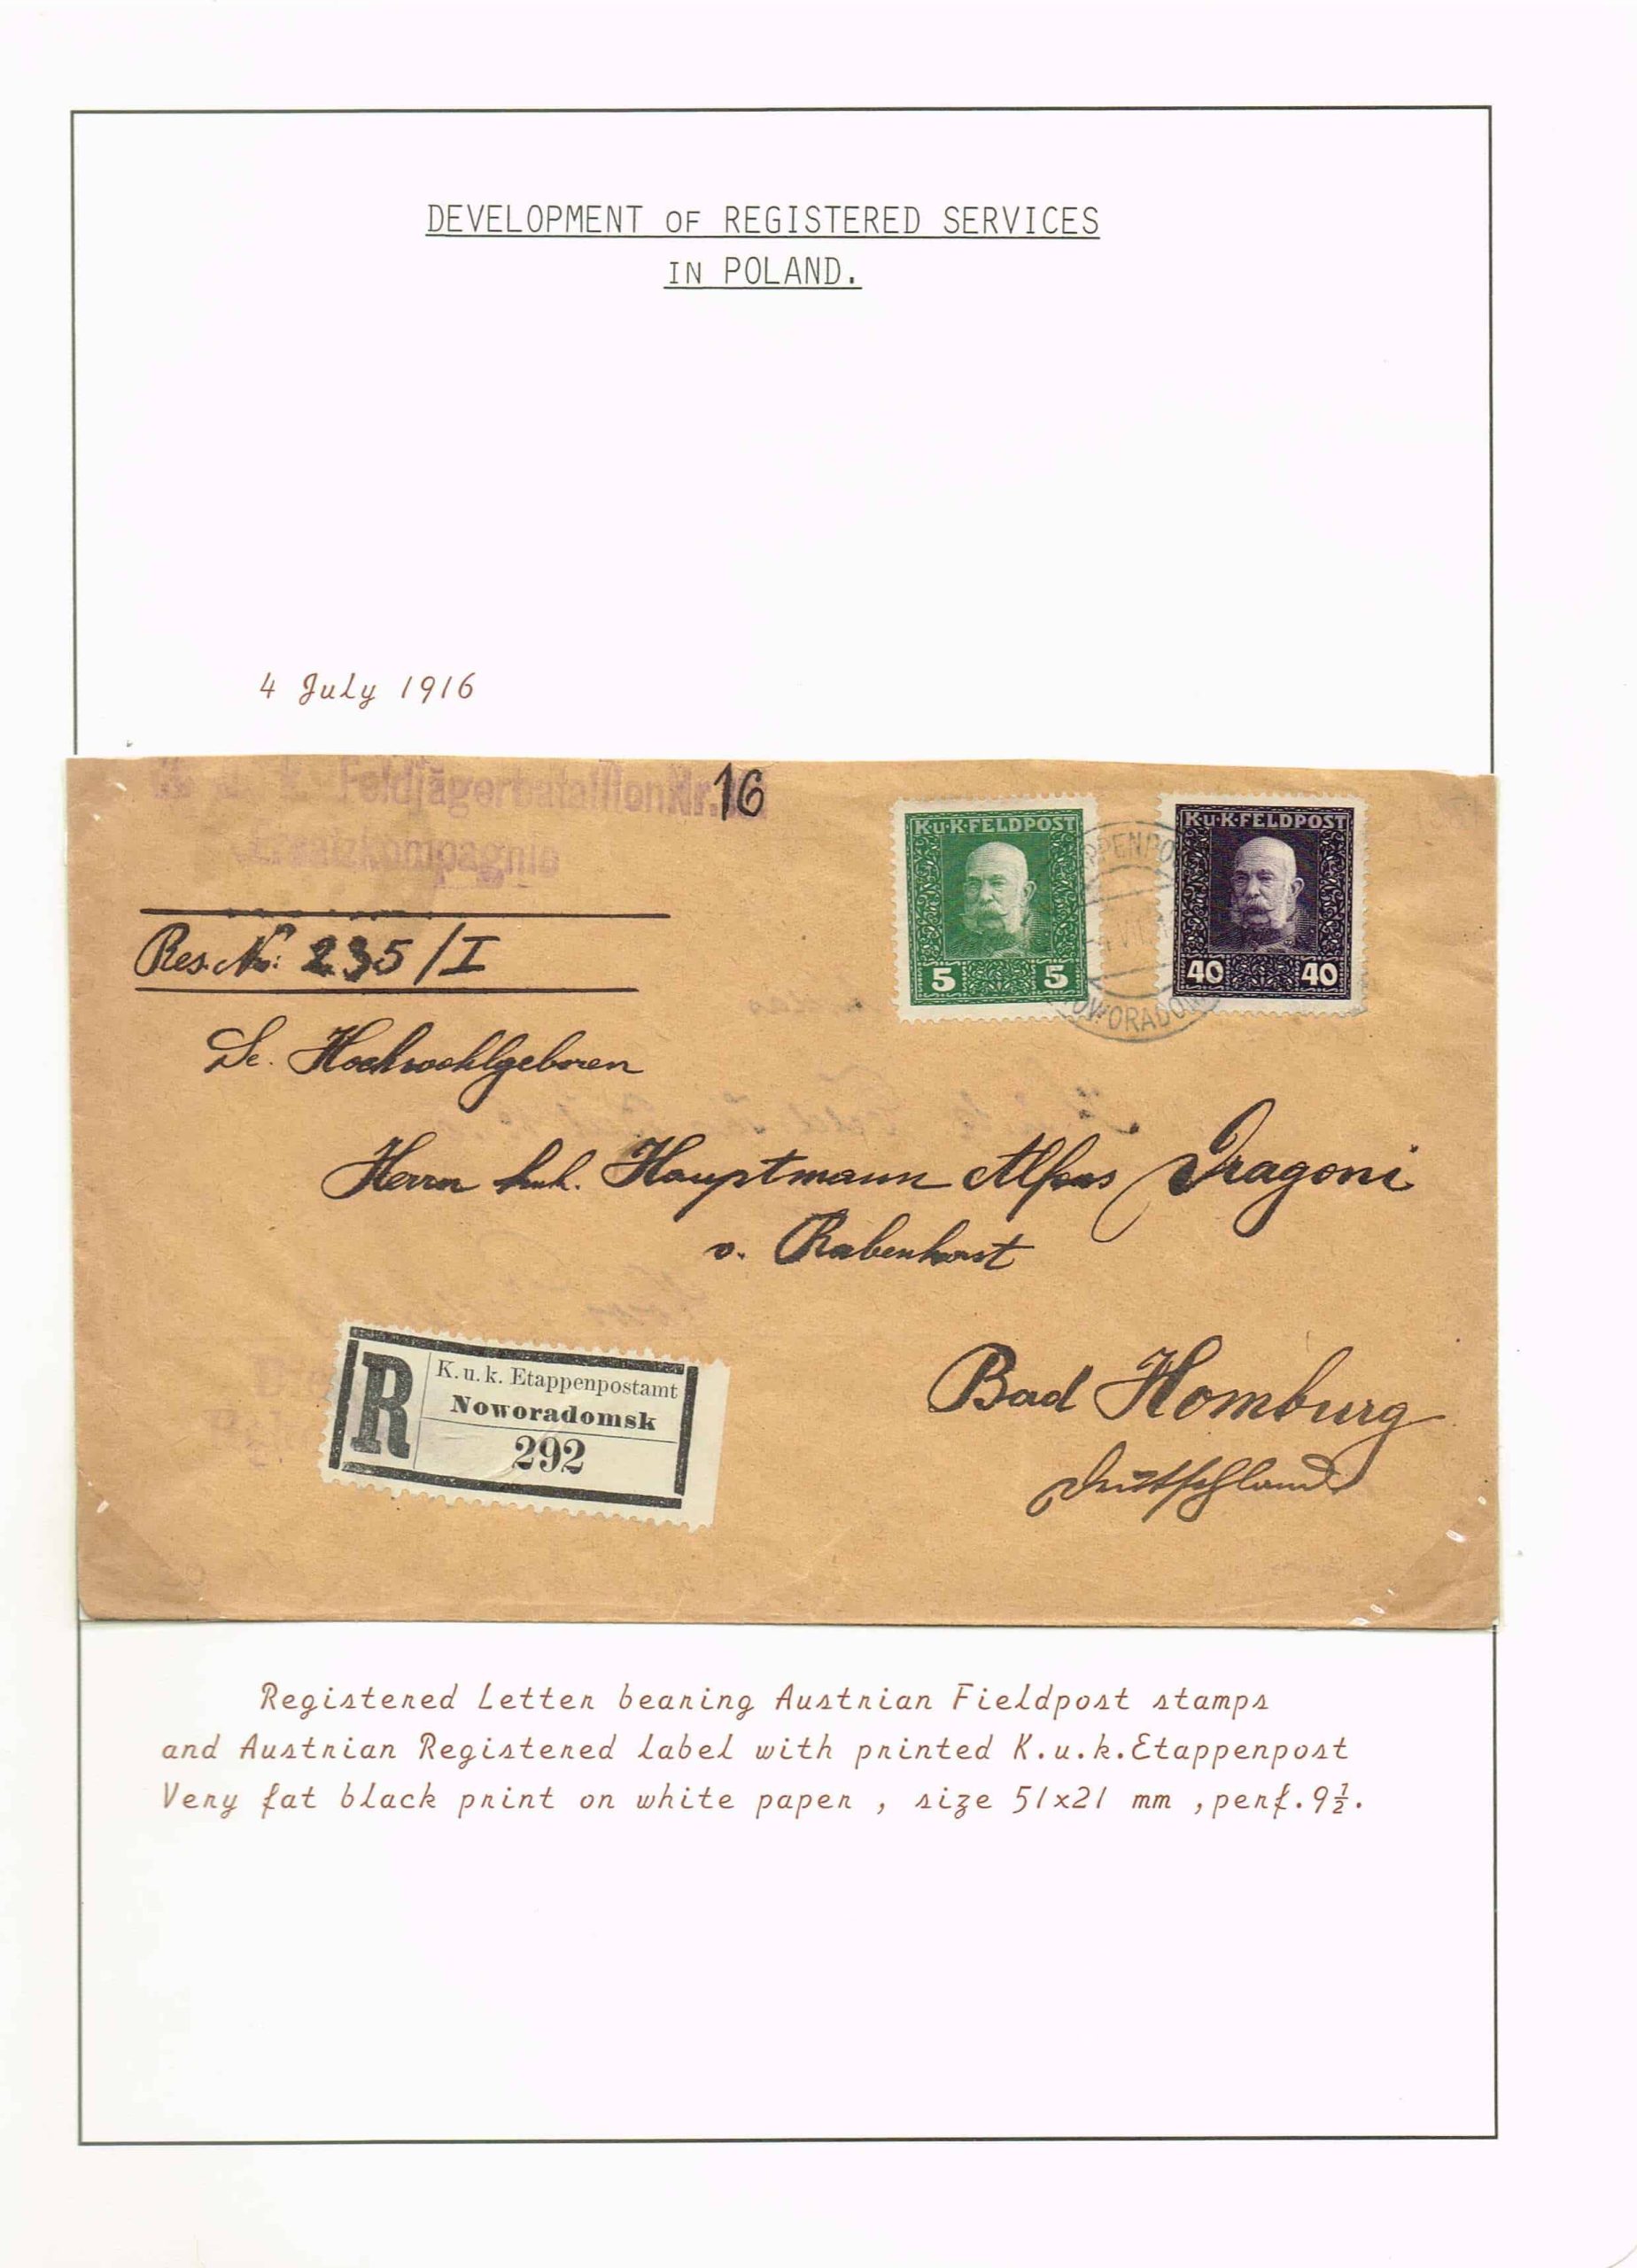 DEVELOPMENT OF REGISTERED SERVICES
IN POLAND.
4 July 1916
K. u. k. Feldjägerbataillon Nr. 16
Ersatzkompagnie
K.u.K.FELDPOST
5 5
K.u.K.FELDPOST
40 40
Res. No: 235/I
Sr. Hochwohlgeboren
Herrn k.u.k. Hauptmann Alfons Dragoni
v. Rabenhorst
K. u. k. Etappenpostamt
R Noworadomsk
292
Bad Homburg
Deutschland
Registered Letter bearing Austrian Fieldpost stamps
and Austrian Registered label with printed K.u.k.Etappenpost
Very fat black print on white paper , size 51x21 mm ,perf.9½.